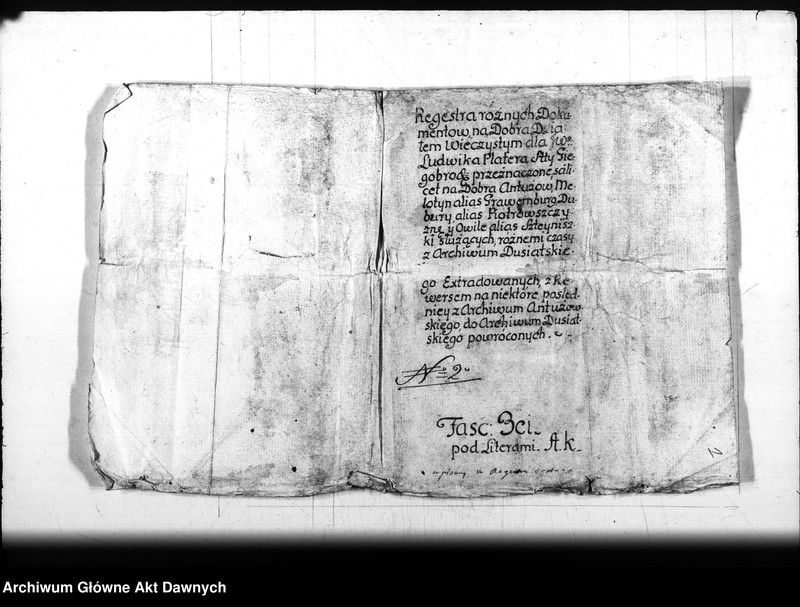 Regestra róźnych Doku-
mentow, na Dobra Dzia-
łem Wieczystym dla JW°
Ludwika Platera Stty Jne-
gobrodz przeznaczone, scili-
cet na Dobra Antuzow, Me-
łotyn alias Grawernburg Du-
bury alias Piotrowszczy-
znę, y Owile alias Szteynisz-
ki służących, róźnemi czasy
z Archiwum Dusiatskie-
go Extradowanych, z Re-
wersem na niektóre, posled-
niey z Archiwum Antuzow-
skiego, do Archiwum Dusiat-
skiego powróconych.
N° 2°
Fasc: 3ci.
pod Literami. A.k.
wpisany w Regestr
N
Archiwum Główne Akt Dawnych